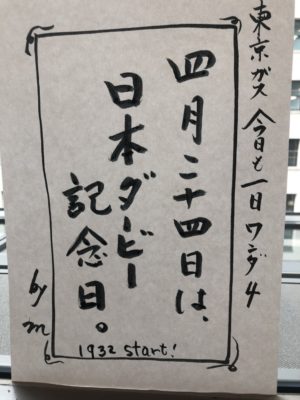 東京ガス 今日も一日ワンダ4
四月二十四日は、
日本ダービー
記念日。
1932 start!
by m